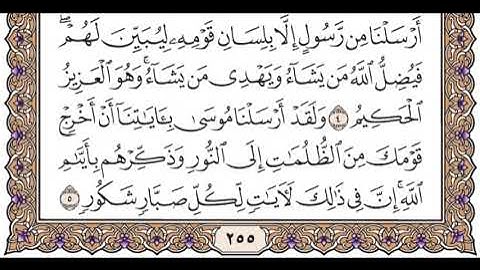 أَرْسَلْنَا مِن رَّسُولٍ إِلَّا بِلِسَانِ قَوْمِهِۦ لِيُبَيِّنَ لَهُمْۖ
فَيُضِلُّ ٱللَّهُ مَن يَشَآءُ وَيَهْدِى مَن يَشَآءُۚ وَهُوَ ٱلْعَزِيزُ
ٱلْحَكِيمُ ٤ وَلَقَدْ أَرْسَلْنَا مُوسَىٰ بِـَٔايَـٰتِنَآ أَنْ أَخْرِجْ
قَوْمَكَ مِنَ ٱلظُّلُمَـٰتِ إِلَى ٱلنُّورِ وَذَكِّرْهُم بِأَيَّىٰمِ
ٱللَّهِۚ إِنَّ فِى ذَٰلِكَ لَـَٔايَـٰتٍ لِّكُلِّ صَبَّارٍ شَكُورٍ ٥
٢٥٥